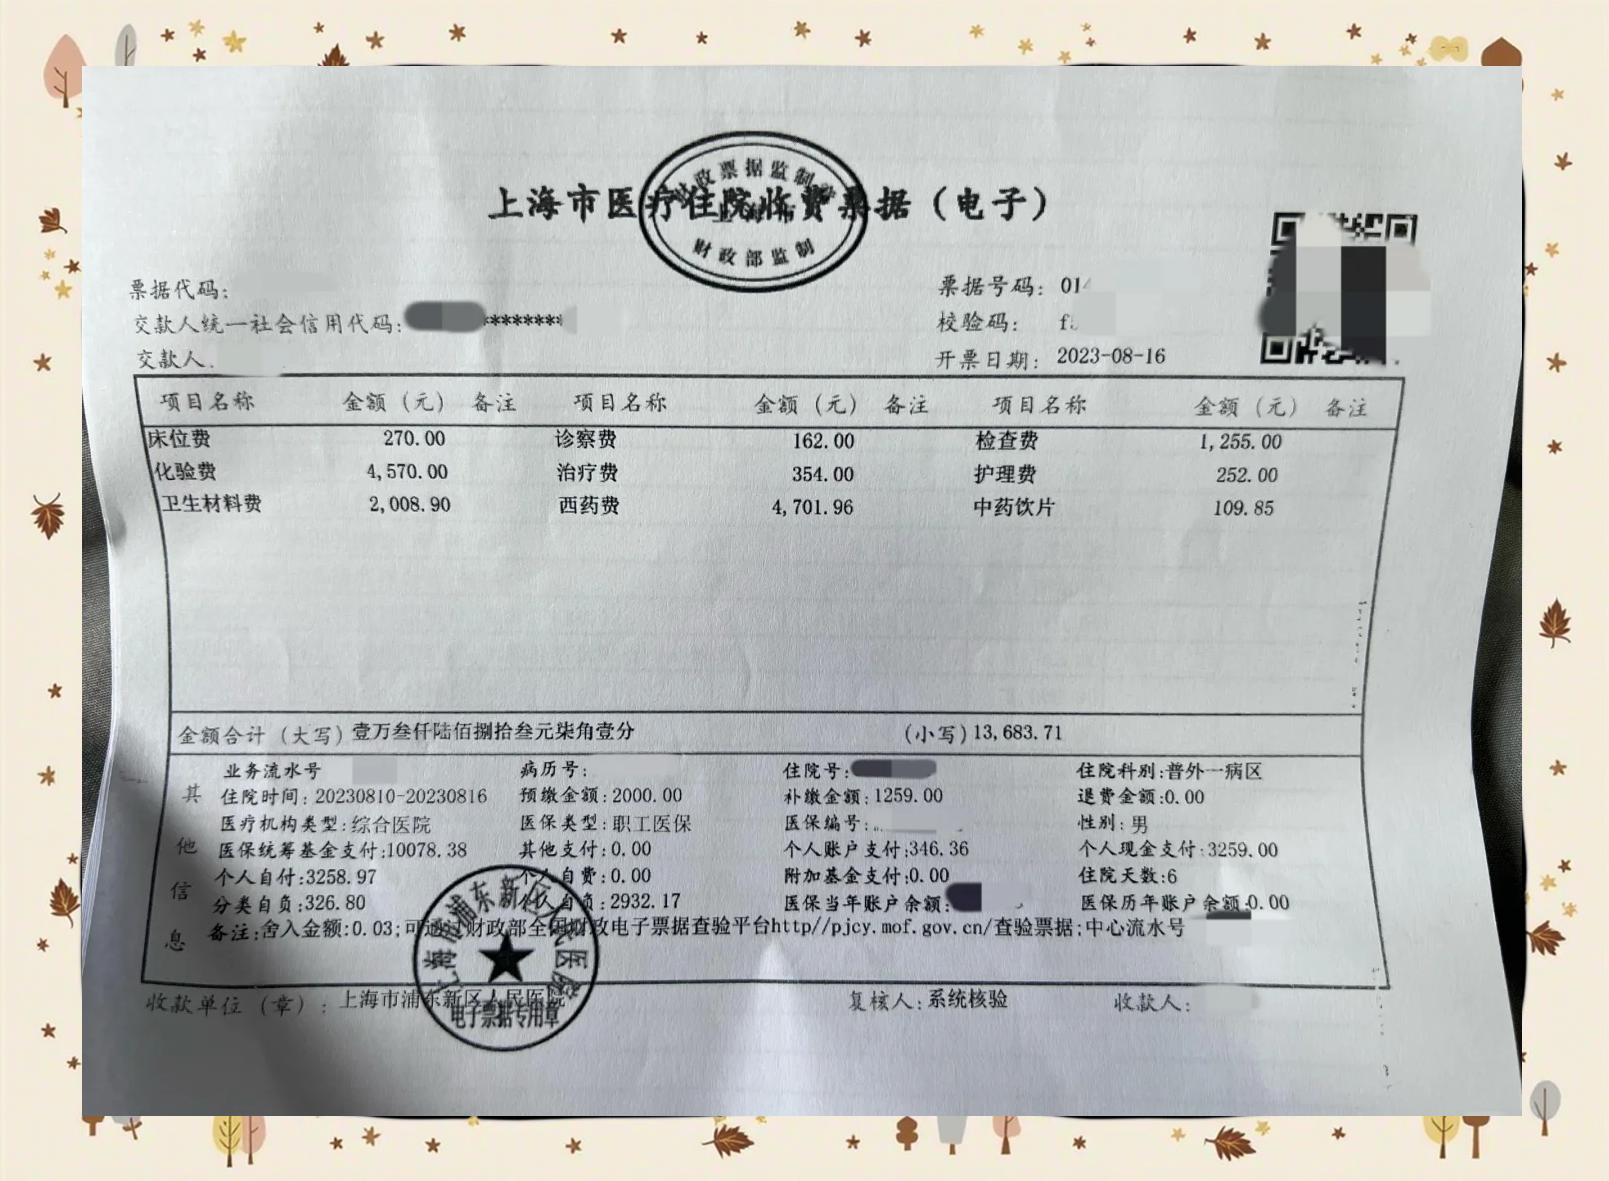 上海市医疗住院收费票据（电子）
财政票据监制章
财政部监制
票据代码:
票据号码: 014
交款人统一社会信用代码: ********
校验码: f
交款人
开票日期: 2023-08-16
项目名称 金额（元） 备注 项目名称 金额（元） 备注 项目名称 金额（元） 备注
床位费 270.00 诊察费 162.00 检查费 1,255.00
化验费 4,570.00 治疗费 354.00 护理费 252.00
卫生材料费 2,008.90 西药费 4,701.96 中药饮片 109.85
金额合计（大写）壹万叁仟陆佰捌拾叁元柒角壹分 （小写）13,683.71
其他信息
业务流水号 病历号: 住院号: 住院科别:普外一病区
住院时间: 20230810-20230816 预缴金额:2000.00 补缴金额:1259.00 退费金额:0.00
医疗机构类型:综合医院 医保类型:职工医保 医保编号: 性别:男
医保统筹基金支付:10078.38 其他支付:0.00 个人账户支付:346.36 个人现金支付:3259.00
个人自付:3258.97 个人自费:0.00 附加基金支付:0.00 住院天数:6
分类自负:326.80 个人自负:2932.17 医保当年账户余额: 医保历年账户余额:0.00
备注:舍入金额:0.03;可通过财政部全国财政电子票据查验平台http//pjcy.mof.gov.cn/查验票据;中心流水号
收款单位（章）: 上海市浦东新区人民医院 复核人:系统核验 收款人:
上海市浦东新区人民医院
电子票据专用章